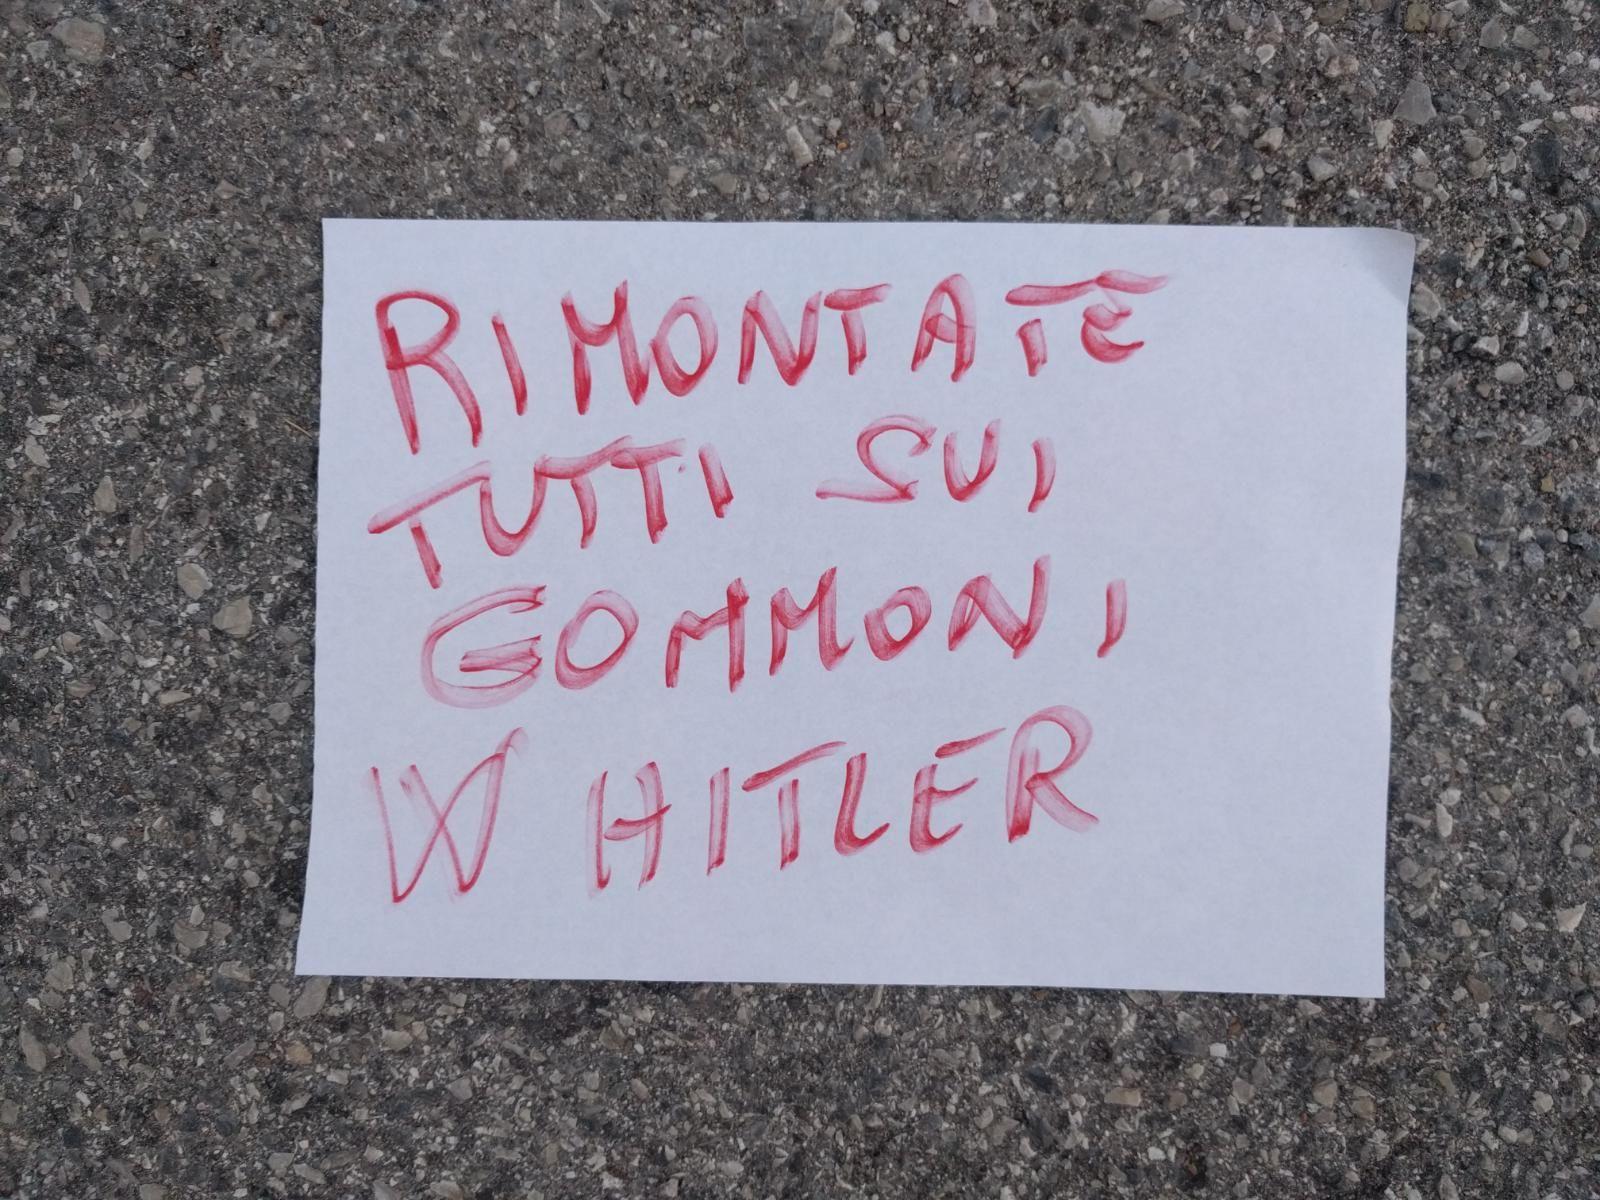 RIMONTATE
TUTTI SUI
GOMMONI
W HITLER